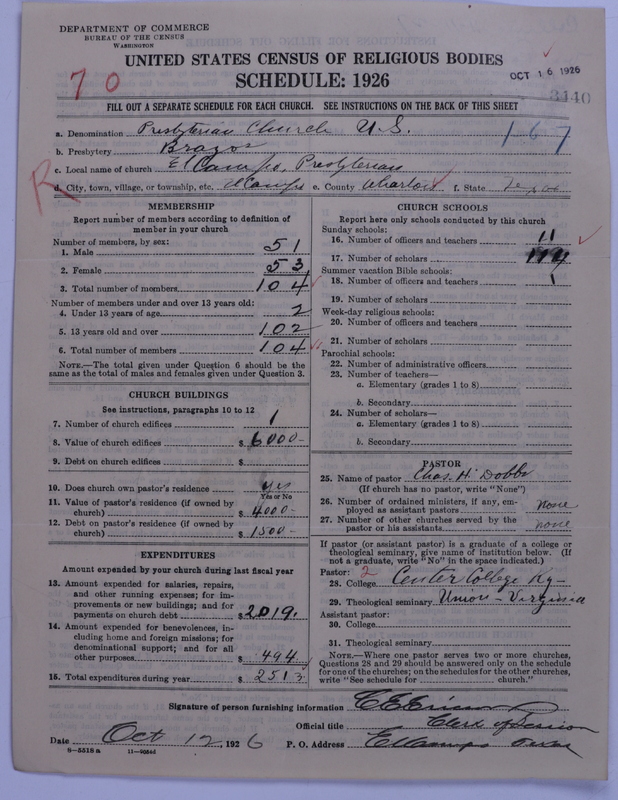 DEPARTMENT OF COMMERCE
BUREAU OF THE CENSUS
WASHINGTON
UNITED STATES CENSUS OF RELIGIOUS BODIES
SCHEDULE: 1926
70
OCT 16 1926
3140
FILL OUT A SEPARATE SCHEDULE FOR EACH CHURCH. SEE INSTRUCTIONS ON THE BACK OF THIS SHEET
a. Denomination Presbyterian Church U.S.
167
b. Presbytery Brazos
c. Local name of church El Campo, Presbyterian
R
d. City, town, village, or township, etc. El Campo e. County Wharton f. State Texas
MEMBERSHIP
Report number of members according to definition of
member in your church
Number of members, by sex:
1. Male 51
2. Female 53
3. Total number of members 104
Number of members under and over 13 years old:
4. Under 13 years of age 2
5. 13 years old and over 102
6. Total number of members 104
NOTE.—The total given under Question 6 should be
same as the total of males and females given under Question 3.
CHURCH BUILDINGS
See instructions, paragraphs 10 to 12
7. Number of church edifices 1
8. Value of church edifices $ 6000-
9. Debt on church edifices $
10. Does church own pastor's residence yes
Yes or No
11. Value of pastor's residence (if owned by
church) $ 4000-
12. Debt on pastor's residence (if owned by
church) $ 1500-
EXPENDITURES
Amount expended by your church during last fiscal year
13. Amount expended for salaries, repairs,
and other running expenses; for im-
provements or new buildings; and for
payments on church debt $ 2019.
14. Amount expended for benevolences, in-
cluding home and foreign missions; for
denominational support; and for all
other purposes $ 494
15. Total expenditures during year $ 2513
CHURCH SCHOOLS
Report here only schools conducted by this church
Sunday schools:
16. Number of officers and teachers 11
17. Number of scholars
Summer vacation Bible schools:
18. Number of officers and teachers
19. Number of scholars
Week-day religious schools:
20. Number of officers and teachers
21. Number of scholars
Parochial schools:
22. Number of administrative officers
23. Number of teachers—
a. Elementary (grades 1 to 8)
b. Secondary
24. Number of scholars—
a. Elementary (grades 1 to 8)
b. Secondary
PASTOR
25. Name of pastor Chas. H. Dobbs
(If church has no pastor, write "None")
26. Number of ordained ministers, if any, em-
ployed as assistant pastors none
27. Number of other churches served by the
pastor or his assistants none
If pastor (or assistant pastor) is a graduate of a college or
theological seminary, give name of institution below. (If
not a graduate, write "No" in the space indicated.)
Pastor: 2
28. College Center College Ky-
29. Theological seminary Union - Verginia
Assistant pastor:
30. College
31. Theological seminary
NOTE.—Where one pastor serves two or more churches,
Questions 28 and 29 should be answered only on the schedule
for one of the churches; on the schedules for the other churches,
write "See schedule for church."
Signature of person furnishing information
Official title Clerk of Session
Date Oct 12, 1926 P. O. Address El Campo Texas
8-5518a 11-9054d